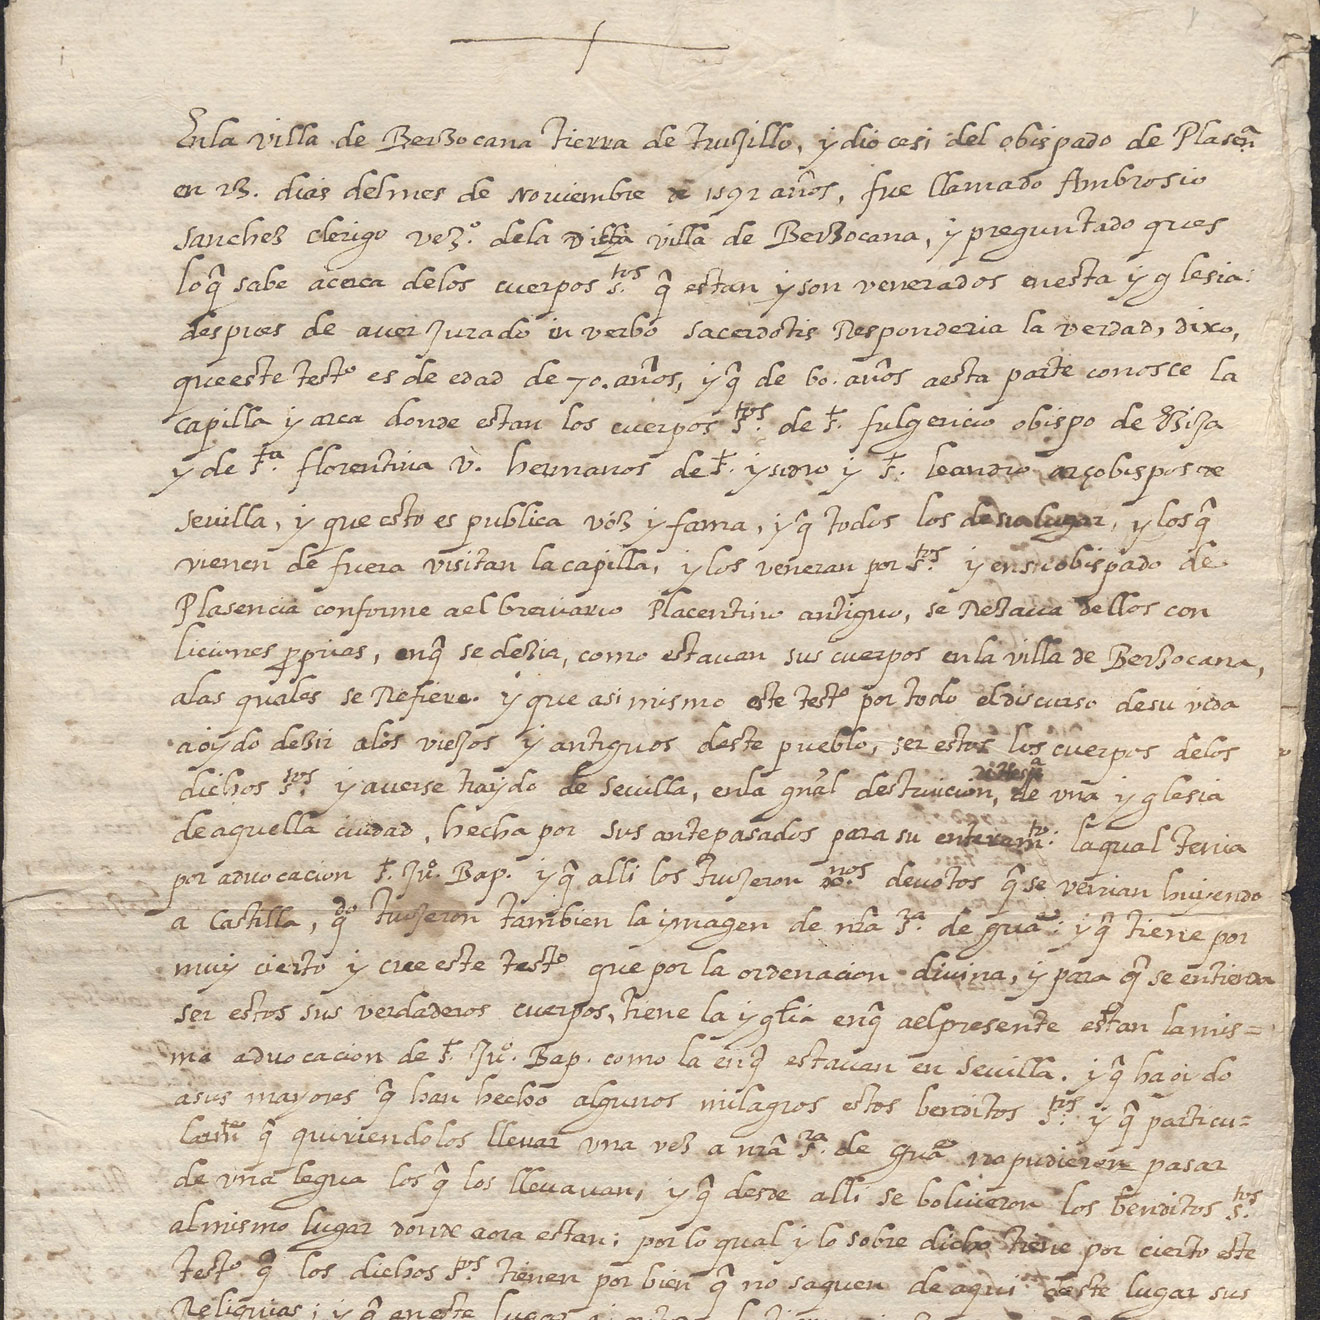 Enla villa de Berzocana tierra de trujillo, y diocesi del obispado de Plasenª
en 23. dias del mes de Noviembre de 1592 años, fue llamado Ambrosio
sanchez clerigo vezº. dela Dicha villa de Berzocana, y preguntado ques
loq̃ sabe acerca delos cuerpos s.tos q̃ estan y son venerados enesta yglesia:
despues de aver Jurado in verbo sacerdotis Responderia la verdad, dixo,
queeste testº es de edad de 70. años, y q̃ de 60. años aesta parte conosce la
capilla y arca donde estan los cuerpos s.tos de s.t fulgencio obispo de Esija
y de s.ta florentina v. hermanos de s.t ysidro y s.t leandro arçobispos de
sevilla, y que esto es publica vóz y fama, y q̃ todos los deste lugar, y los q̃
vienen de fuera visitan la capilla, y los veneran por s.tos y ensu obispado de
Plasencia conforme a el breviario Placentino antiguo, se Rezava dellos con
liciones proprias, enq̃ se dezia, como estavan sus cuerpos enla villa de Berzocana,
alas quales se Refiere. y que asi mismo este testº por todo el discurso desu vida
a oydo dezir alos viejos y antiguos deste pueblo, ser estos los cuerpos delos
dichos s.tos y averse traydo de Sevilla, enla gñal destruicion, de una yglesia
de aquella ciudad, hecha por sus antepasados para su enteramtº: laqual tenia
por advocacion s.t Juº. Bap. y q̃ alli los trujeron unos devotos q̃ se venian huyendo
a Castilla, qdo trujeron tambien la ymagen de nrã s.ra de guã: y q̃ tiene por
muy cierto y cree este testº que por la ordenacion divina, y para q̃ se entienda
ser estos sus verdaderos cuerpos, tiene la yglia enq̃ al presente estan la mis=
ma advocacion de s.t Juº. Bap. como la enq̃ estavan en Sevilla. y q̃ ha oido
asus mayores q̃ han hecho algunos milagros estos benditos s.tos y q̃ particu=
larmte q̃ quiriendolos llevar una vez a nrã s.ra de guã no pudieron pasar
de una legua los q̃ los llevavan, y q̃ desde alli se bolvieron los benditos s.tos
al mismo lugar donde aora estan: por lo qual i lo sobre dicho tiene por cierto este
testº q̃ los dichos s.tos tienen por bien q̃ no saquen de aqui deste lugar sus
Reliquias; y q̃ en este lugar